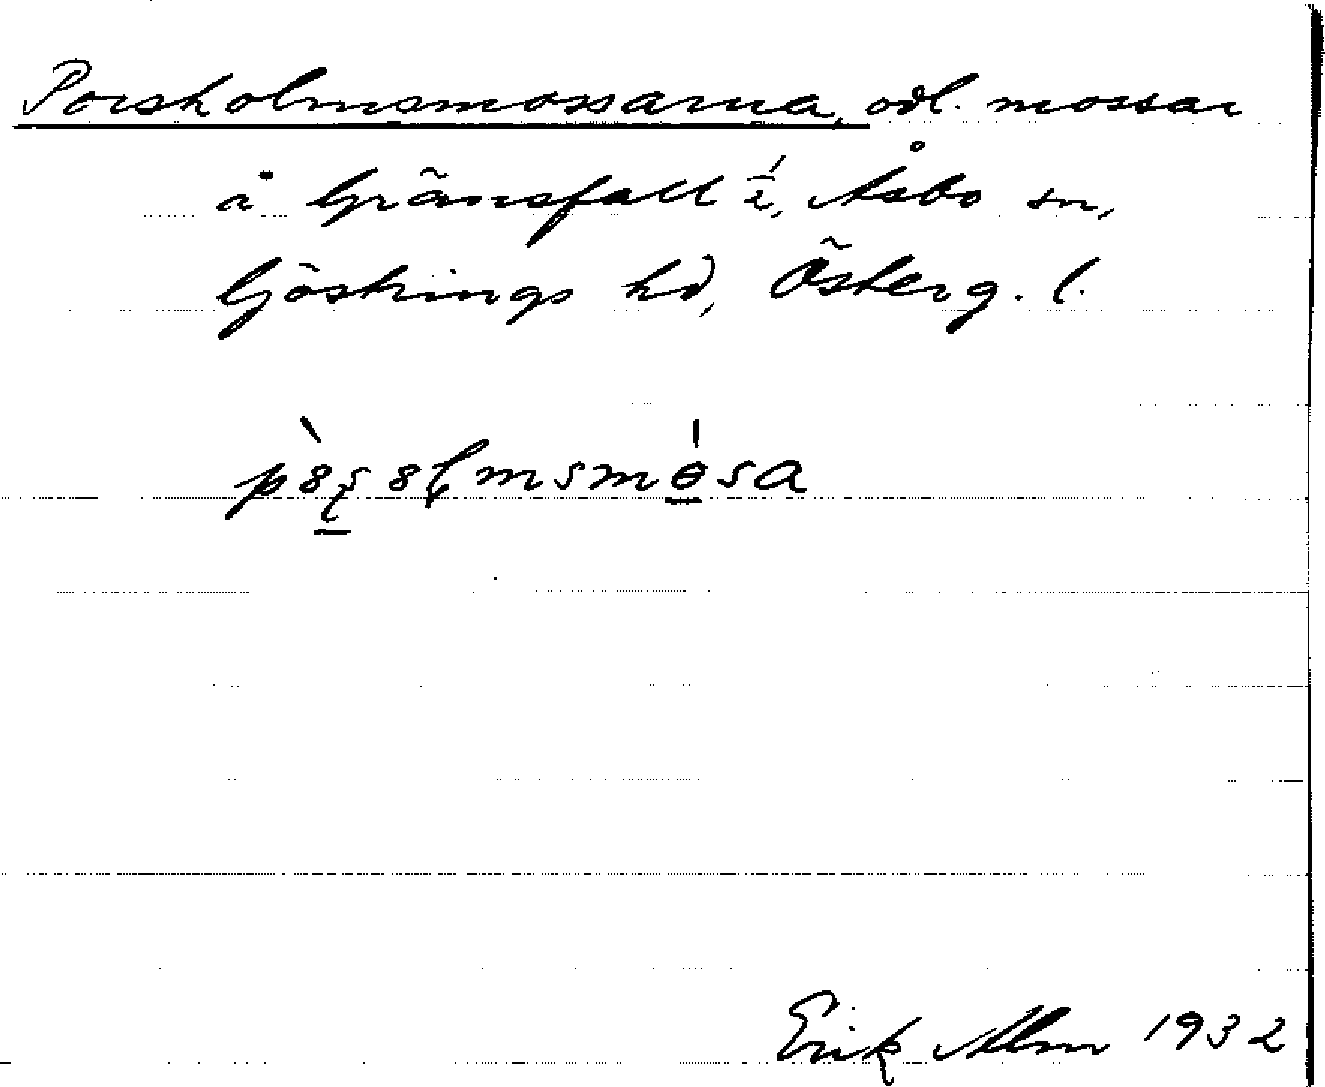 Porsholmsmossarna, odl. mossar
å Gränsfall 1/2, Åsbo sn,
Göstrings hd, Österg. l.
Erik Alm 1932